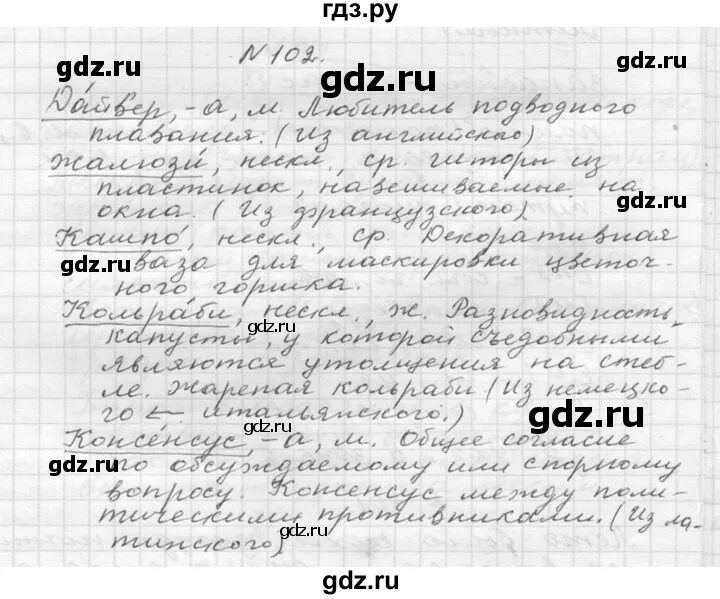 гдз.ру
N 102.
Да́йвер, -а, м. Любитель подводного
плавания. (Из английского)
Жалюзи́, нескл., ср. Шторы из
пластинок, навешиваемые на
окна. (Из французского)
Кашпо́, нескл., ср. Декоративная
ваза для маскировки цветоч-
ного горшка.
Кольра́би, нескл., ж. Разновидность
капусты, у которой съедобными
являются утолщения на стеб-
ле. Жареная кольраби (Из немецко-
го ← итальянского.)
Консе́нсус, -а, м. Общее согласие
по обсуждаемому или спорному
вопросу. Консенсус между поли-
тическими противниками. (Из ла-
тинского)
gdz.ru
gdz.ru
gdz.ru
gdz.ru
gdz.ru
gdz.ru
gdz.ru
gdz.ru
gdz.ru
gdz.ru
gdz.ru
gdz.ru